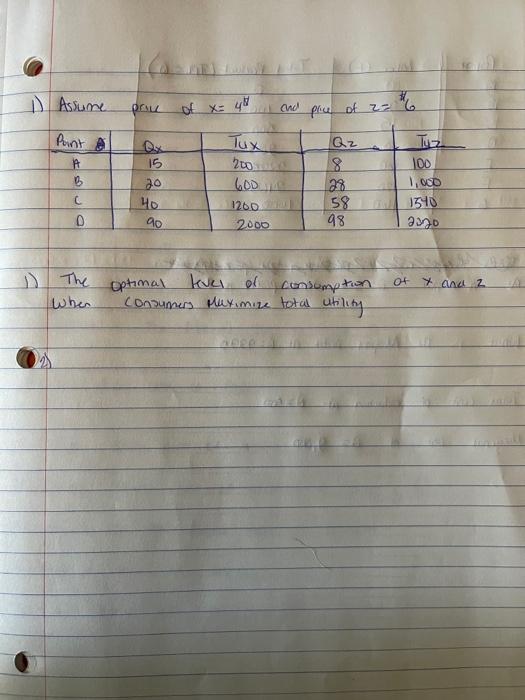 1) Assume price of x= 4$ and price of z= $6
Point Qx Tux Qz Tuz
A 15 200 8 100
B 20 600 28 1,000
C 40 1200 58 1540
D 90 2000 98 2020
1) The optimal level of consumption of x and z
When consumers Maximize total utility
2)